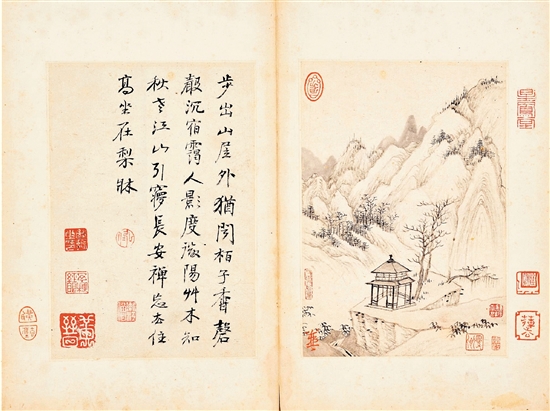 步出山屋外猶聞栢子香磬
聲沉宿靄人影度微陽艸木知
秋老江山引夢長安禪忘去住
高坐在梨牀